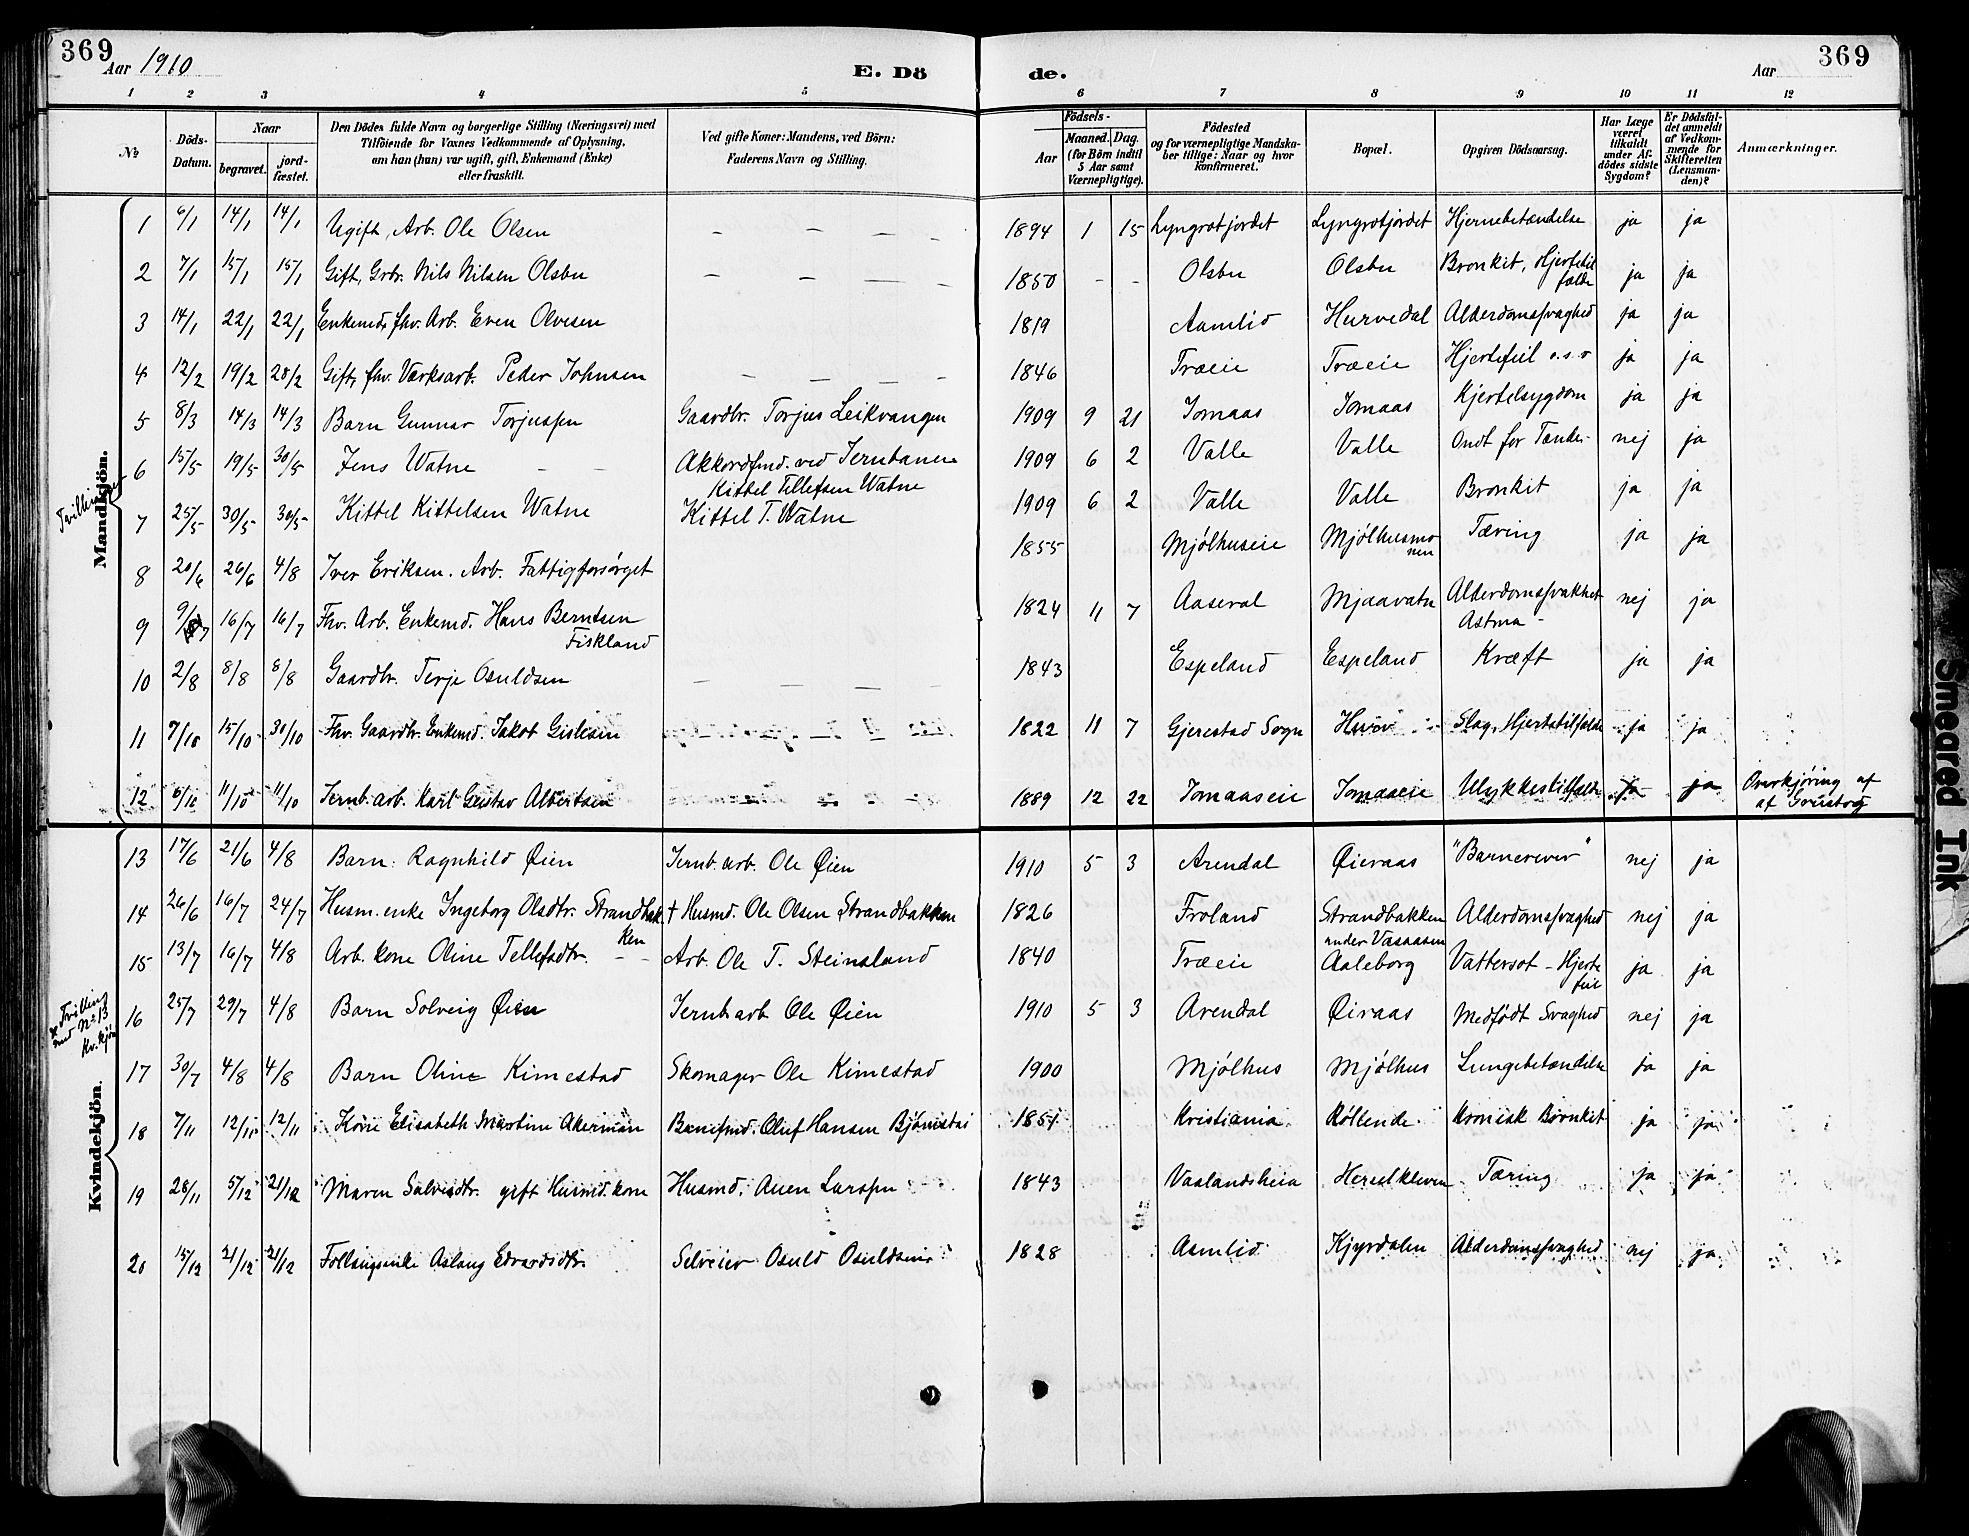 369 Aar 1910 E. Dö de. Aar 369
1 2 3 4 5 6 7 8 9 10 11 12
No Döds-Datum. Naar begravet. jord-fæstet. Den Dödes fulde Navn og borgerlige Stilling (Næringsvei) med Tilföiende for Voxnes Vedkommende af Oplysning, om han (hun) var ugift, gift, Enkemand (Enke) eller fraskilt. Ved gifte Koner: Mandens, ved Börn: Faderens Navn og Stilling. Födsels- Aar Maaned. Dag. (for Börn indtil 5 Aar samt Værnepligtige). Födested og for værnepligtige Mandskaber tillige: Naar og hvor konfirmeret. Bopæl. Opgiven Dödsaarsag. Har Læge været tilkaldt under Afdödes sidste Sygdom? Er Dödsfaldet anmeldt af Vedkommende for Skifteretten (Lensmanden)? Anmærkninger.
Mandkjön.
1 6/1 14/1 14/1 Ugift, Arb. Ole Olsen — — — — 1894 1 15 Lyngrotjordet Lyngrotjordet Hjernebetændelse ja ja
2 7/1 15/1 15/1 Gift, Grbr. Nils Nilsen Olsbu — — — — 1850 - - Olsbu Olsbu Bronkit, Hjertetilfælde ja ja
3 14/1 22/1 22/1 Enkemd, fhv. Arb. Even Olvesen 1819 Aamlid Hurvedal Alderdomssvaghed ja ja
4 12/2 19/2 28/2 Gift, fhv. Værksarb. Peder Johnsen — — — — 1846 Træeie Træeie Hjertefeil o.s.v ja ja
5 8/3 14/3 14/3 Barn Gunnar Torjussen Gaardbr. Torjus Leikvangen 1909 9 21 Jomaas Jomaas Kjertelsygdom ja ja
Tvillinger
6 15/5 19/5 30/5 Jens Watne - - Akkordfmd. ved Jernbanen Kittel Tellefsen Watne 1909 6 2 Valle Valle Ondt for Tænder- nej ja
7 25/5 30/5 30/5 Kittel Kittelsen Watne Kittel T. Watne 1909 6 2 Valle Valle Bronkit ja ja
8 20/6 26/6 4/8 Iver Eriksen. Arb. Fattigforsørget 1855 Mjølhuseie Mjølhusmonen Tæring ja ja
9 9/7 16/7 16/7 Fhv. Arb. Enkemd. Hans Berntsen Fiskland 1824 11 7 Aaseral Mjaavatn Alderdomssvakhet Astma - nej ja
10 2/8 8/8 8/8 Gaardbr. Terje Osuldsen — — — — 1843 Espeland Espeland Kræft ja ja
11 7/10 15/10 30/10 Fhv. Gaardbr. Enkemd. Jakob Gislesen 1822 11 7 Gjerestad Sogn Slag, Hjertetilfælde ja ja
12 6/10 11/10 11/10 Jernb. arb. Karl Gustav Albertsen 1889 12 22 Jomaaseie Jomaaseie Ulykkestilfælde ja ja Overkjøring af af Grustog
Kvindekjön.
13 17/6 21/6 4/8 Barn: Ragnhild Øien Jernb. arb. Ole Øien 1910 5 3 Arendal Øieraas nej ja
14 26/6 16/7 24/7 Husm. enke Ingeborg Olsdtr. Strandbakken † Husmd. Ole Olsen Strandbakken 1826 Froland Strandbakken under Vasaasen Alderdomssvaghed nej ja
15 13/7 16/7 4/8 Arb. kone Oline Tellefsdtr. - - Arb. Ole T. Steinsland 1840 Træeie Aaleborg Vattersot - Hjertefeil ja ja
Tvilling med No 13 kv. kjøn
16 25/7 29/7 4/8 Barn Solveig Øien Jernb arb Ole Øien 1910 5 3 Arendal Øiraas Medfødt Svaghed nej ja
17 30/7 4/8 4/8 Barn Oline Kimestad Skomager Ole Kimestad 1900 Mjølhus Mjølhus Lungebetændelse ja ja
18 7/11 12/11 12/11 Kone Elisabeth Martine Akerman Banefmd. Oluf Hansen Bjørnstad 1851 Kristiania Bøllende Kronisk Bronkit ja ja
19 28/11 5/12 21/12 Maren Salvesdtr. gift Husmd. kone Husmd. Aven Larssen 1843 Vaalandsheia Heresklleven Tæring ja ja
20 15/12 21/12 21/12 Follaugsenke Aslaug Edvardsdtr. Selveier Osuld Osuldsen 1828 Aamlid Kjyrdalen Alderdomssvaghed nej ja
Smeared Ink